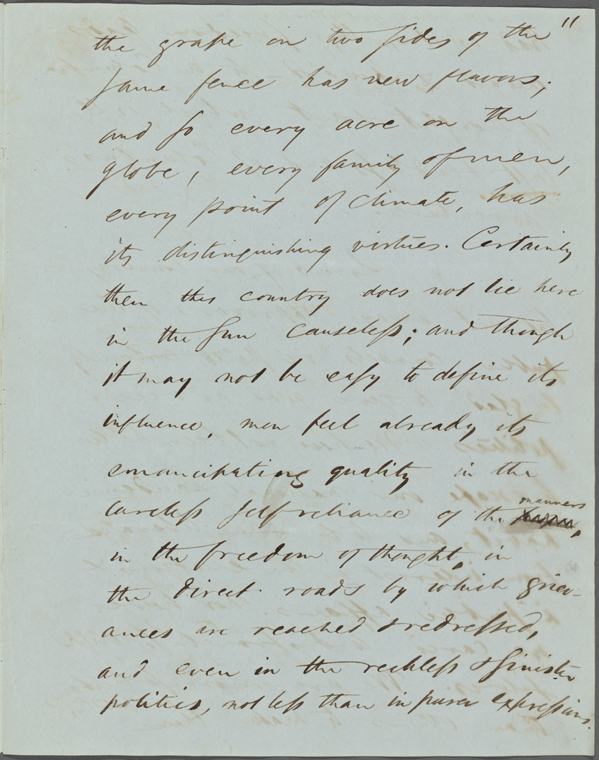 11
the grape on two sides of the
same fence has new flavors;
and so every acre on the
globe, every family of men,
every point of climate, has
its distinguishing virtues. Certainly
then this country does not lie here
in the sun causeless; and though
it may not be easy to define its
influence, men feel already its
emancipating quality in the
careless self-reliance of the manners,
in the freedom of thought, in
the direct roads by which griev-
ances are reached & redressed,
and even in the reckless & sinister
politics, not less than in purer expressions.